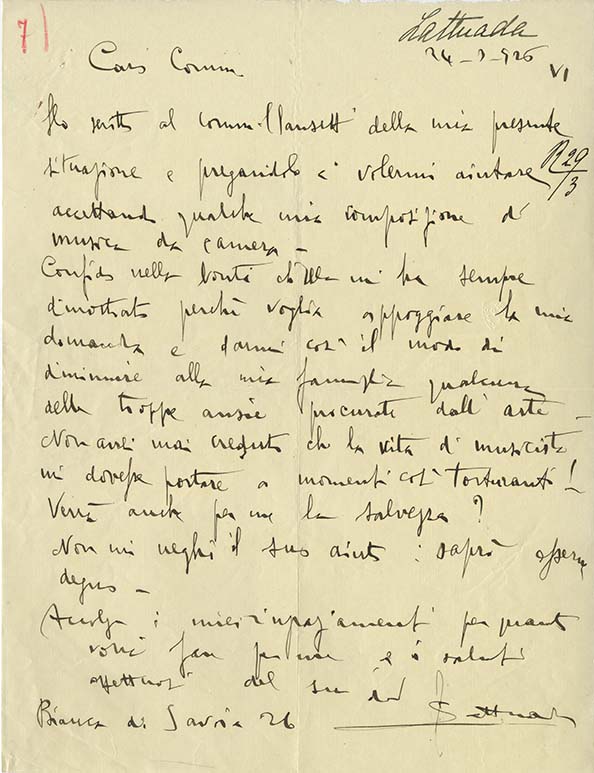 7
Lattuada
24-3-926
VI
Caro Comm.
Ho scritto al comm. Clausetti della mia presente
situazione e pregandolo a volermi aiutare
R 29/3
accettando qualche mia composizione di
musica da camera -
Confido nella bontà ch'Ella mi ha sempre
dimostrato perchè voglia appoggiare la mia
domanda e darmi così il modo di
diminuire alla mia famiglia qualcuna
delle troppe ansie procurate dall'arte -
Non avrei mai creduto che la vita di musicista
mi dovesse portare a momenti così torturanti!
Verrà anche per me la salvezza?
Non mi neghi il suo aiuto: saprò esserne
degno -
Accolga i miei ringraziamenti per quanto
vorrà fare per me e i saluti
affettuosi del suo
Lattuada
Bianca di Savoia 26